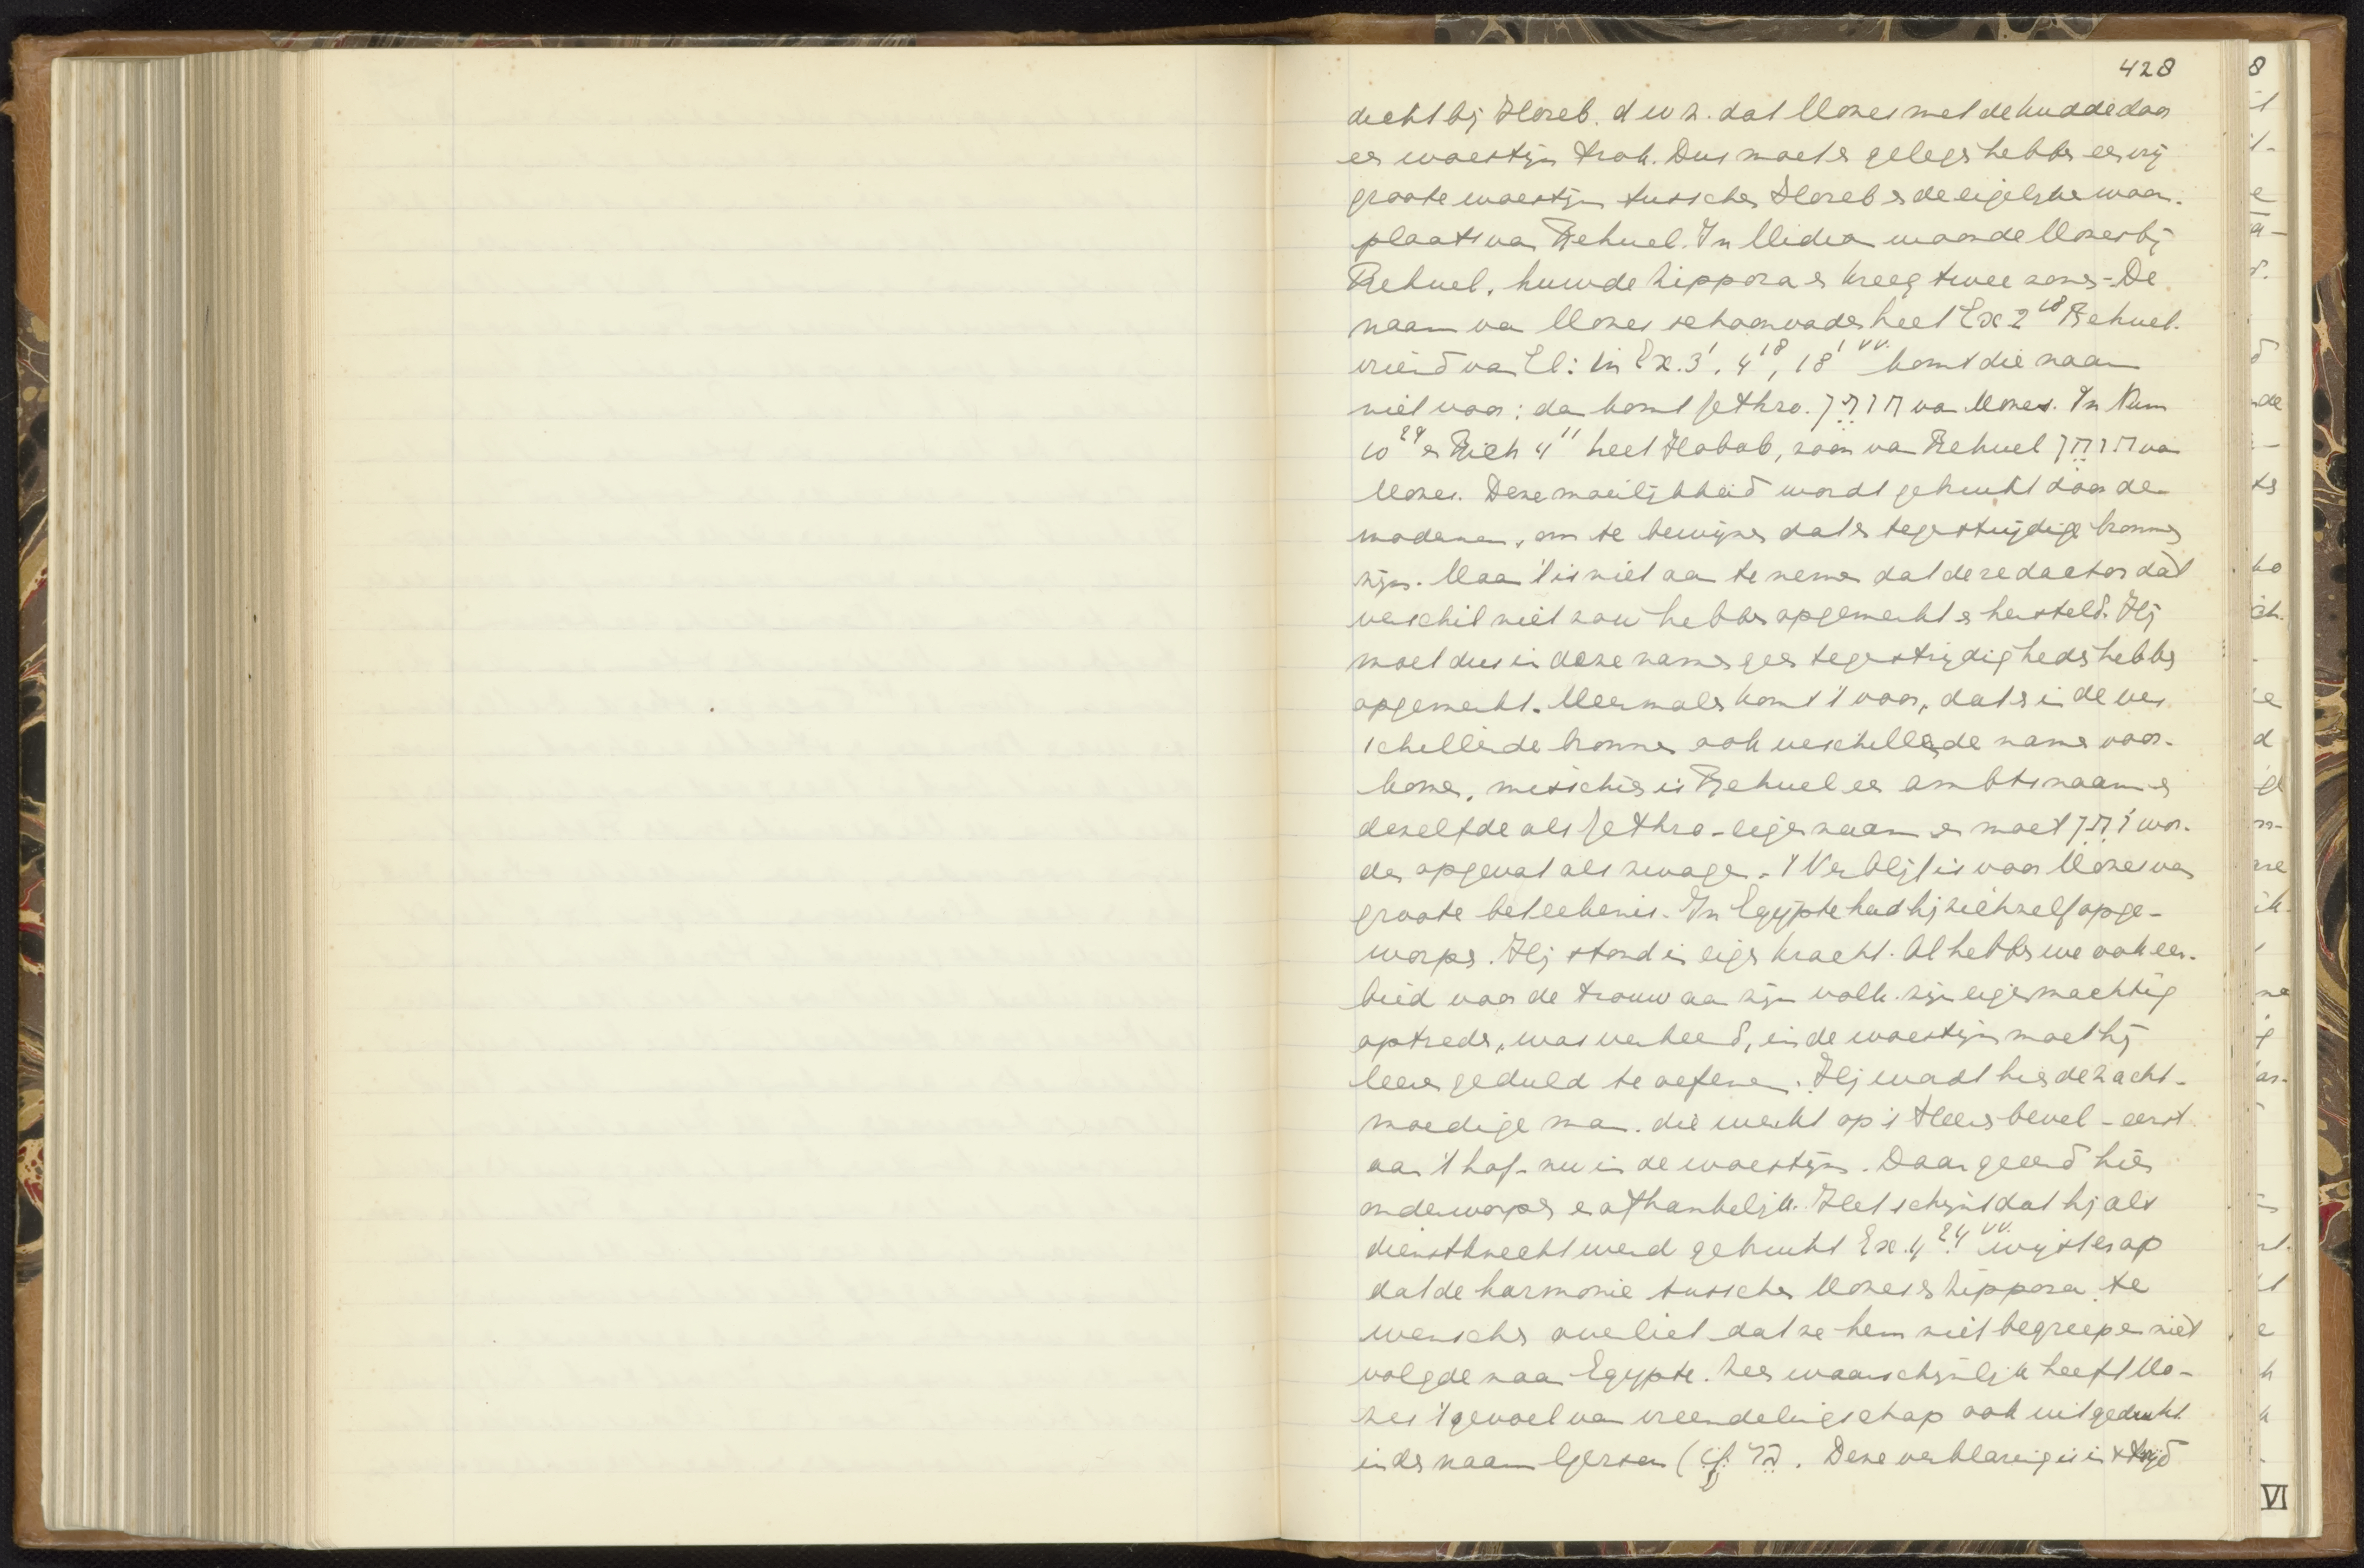 428
dicht bij Horeb. d w z. dat Mozes met de kudde door
ee woestijn trok. Dus moet e gelege hebbe ee vrij
groote woestijn tussche Horeb e de eigelijke woon-
plaats va Rehuel. In Midia woonde Mozes bij
Rehuel, huwde Zippora e kreeg twee zons - De
naam va Mozes schoonvade heet Ex 2 18 Rehuel.
vriend va El: in Ex. 3 1, 4 18, 18 1 vv. komt die naam
niet voor: da komt Jethro. חֹתֵן va Mozes. In Num
10 29 e Rich 4 11 heet Hobab, zoon va Rehuel חֹתֵן va
Mozes. Deze moeilijkheid wordt gebruikt door de
modernen, om te bewijze dat e tegestrijdige bronne
zijn. Maa 't is niet aa te neme dat de redactor dat
verschil niet zou hebbe opgemerkt e hersteld. Hij
moet dus in deze name gee tegestrijdighede hebbe
opgemerkt. Meermale komt 't voor, dat e i de ver
schillende bronne ook verschillende name voor-
kome, misschie is Rehuel ee ambtsnaam e
dezelfde als Jethro - eige naam e moet חֹתֵן wor-
de opgevat als zwager. - 't Verblijf is voor Mozes va
groote beteekenis. In Egypte had hij zichzelf opge-
worpe. Hij stond i eige kracht. Al hebbe we ook eer-
bied voor de trouw aa zijn volk. zijn eigemachtig
optrede, was verkeerd, in de woestijn moet hij
leere geduld te oefene. Hij wordt hie de zacht-
moedige ma. die werkt op 's Heere bevel - eerst
aan 't hof - nu in de woestijn. Daar geeerd hier
onderworpe e afhankelijk. Het schijnt dat hij als
dienstknecht werd gebruikt Ex. 4 24 vv. wijst er op
dat de harmonie tussche Mozes e Zippora te
wensche overliet dat ze hem niet begreep e niet
volgde naa Egypte. Zeer waarschijnlijk heeft Mo-
zes 't gevoel va vreemdelingschap ook uitgedrukt
in de naam Gersom ( Deze verklaring is i strijd
VI